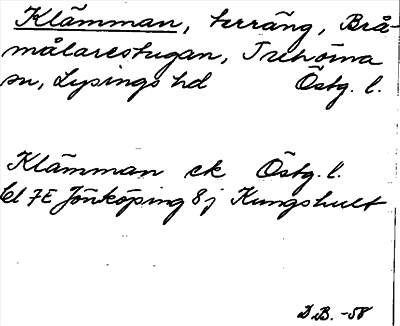 Klämman, terräng, Brå-
målarestugan, Trehörna
sn, Lysings hd Östg. l.
Klämman ek Östg. l.
bl 7E Jönköping 8j Kungshult
D.B. -58